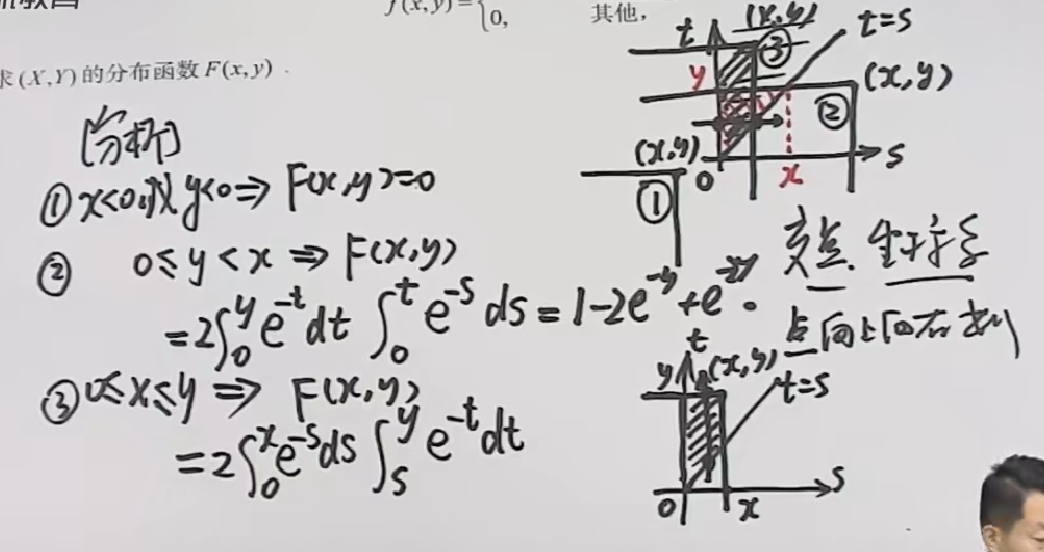 f(x,y)={0, 其他,
求(X,Y)的分布函数F(x,y).
[分析]
① x<0或y<0⇒ F(x,y)=0
② 0≤y<x ⇒ F(x,y)
=2∫₀^y e^{-t}dt ∫₀^t e^{-s}ds = 1-2e^{-y}+e^{-2y}.
③ 0≤x≤y ⇒ F(x,y)
=2∫₀^x e^{-s}ds ∫_s^y e^{-t}dt
t (x,y) t=s
③
y (x,y)
②
(x,y) 0 x s
①
交点
点向上向右
t
y (x,y) t=s
0 x s